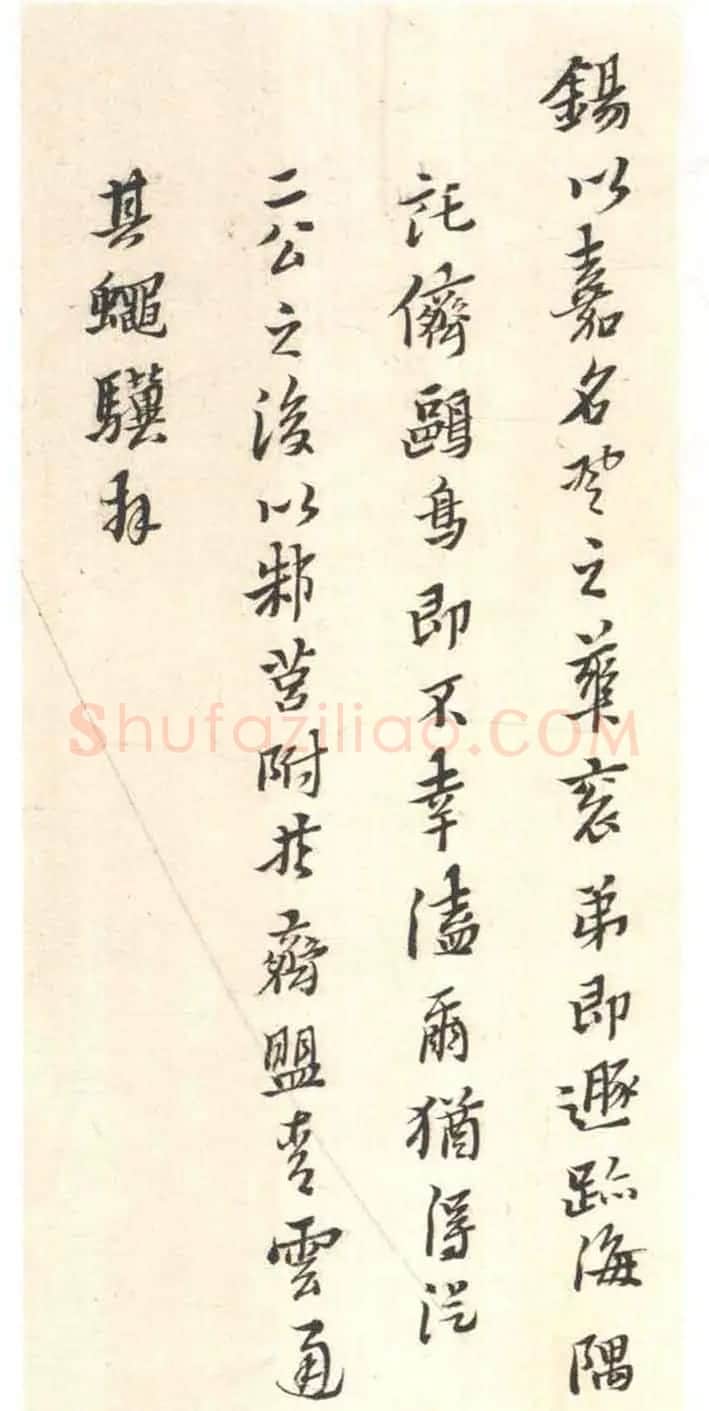 錫以嘉名登之華袞弟即遯跡海隅
託儕鷗鳥即不幸溘爾猶得從
二公之後以邾莒附於齊盟青雲通
其蠅驥拜
Shufaziliao.COM